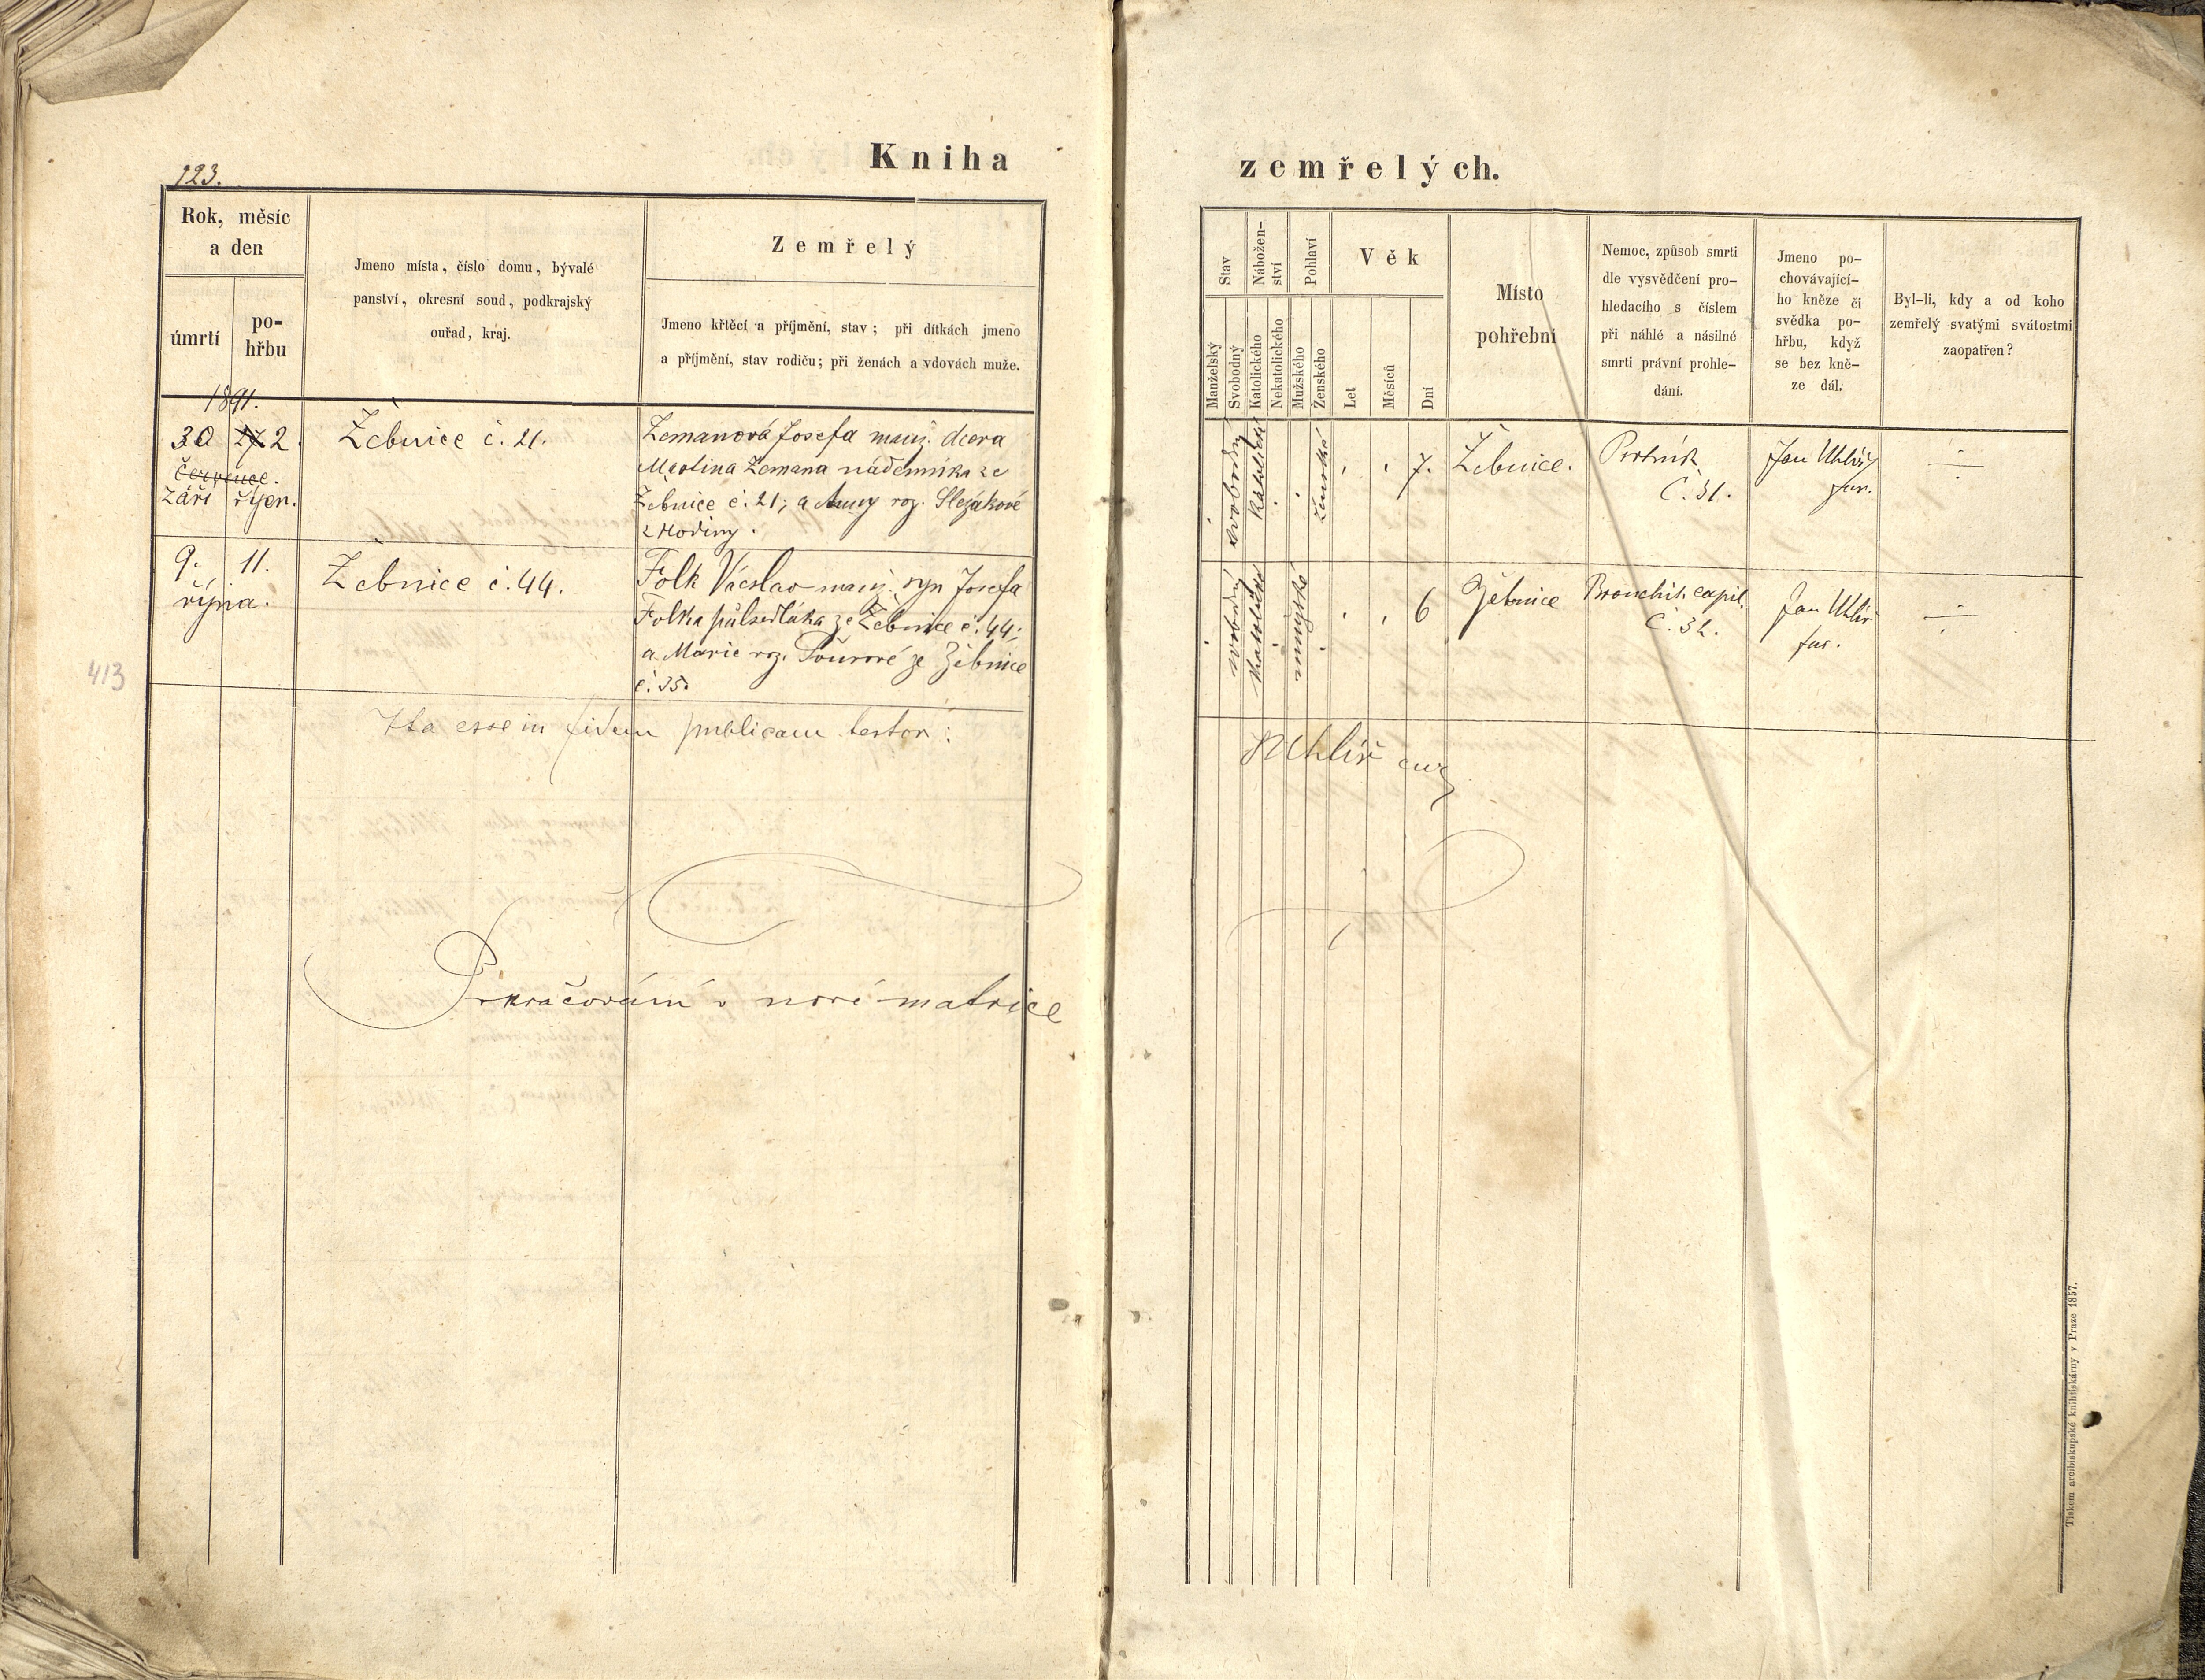 123.
Kniha zemřelých.
Rok, měsíc
a den
úmrtí
po-
hřbu
Jmeno místa, číslo domu, bývalé
panství, okresní soud, podkrajský
ouřad, kraj.
Zemřelý
Jmeno křtěcí a příjmění, stav; při dítkách jmeno
a příjmění, stav rodičů; při ženách a vdovách muže.
Stav
Manželský
Svobodný
Nábožen-
ství
Katolického
Nekatolického
Pohlaví
Mužského
Ženského
Věk
Let
Měsíců
Dní
Místo
pohřební
Nemoc, způsob smrti
dle vysvědčení pro-
hledacího s číslem
při náhlé a násilné
smrti právní prohle-
dání.
Jmeno po-
chovávající-
ho kněze či
svědka po-
hřbu, když
se bez kně-
ze dál.
Byl-li, kdy a od koho
zemřelý svatými svátostmi
zaopatřen?
1891.
30 27 2.
července.
září říjen.
Žebnice č. 21.
Zemanová Josefa manž. dcera
Martina Zemana nádenníka ze
Žebnice č. 21; a Anny roz. Slezákové
z Hodiny.
svobodný
katolické
ženské
7.
Žebnice.
Psotník
Č. 31.
Jan Uhlíř
far.
9. 11.
října.
Žebnice č. 44.
Folk Václav manž. syn Josefa
Folka půlsedláka ze Žebnice č. 44;
a Marie roz. Sourové ze Žebnice
č. 35.
svobodný
katolické
mužské
6
Žebnice
Bronchit. capil.
Č. 32.
Jan Uhlíř
far.
413
Ita esse in fidem publicam testor:
JUhlíř
Pokračování v nové matrice
Tiskem arcibiskupské knihtiskárny v Praze 1857.